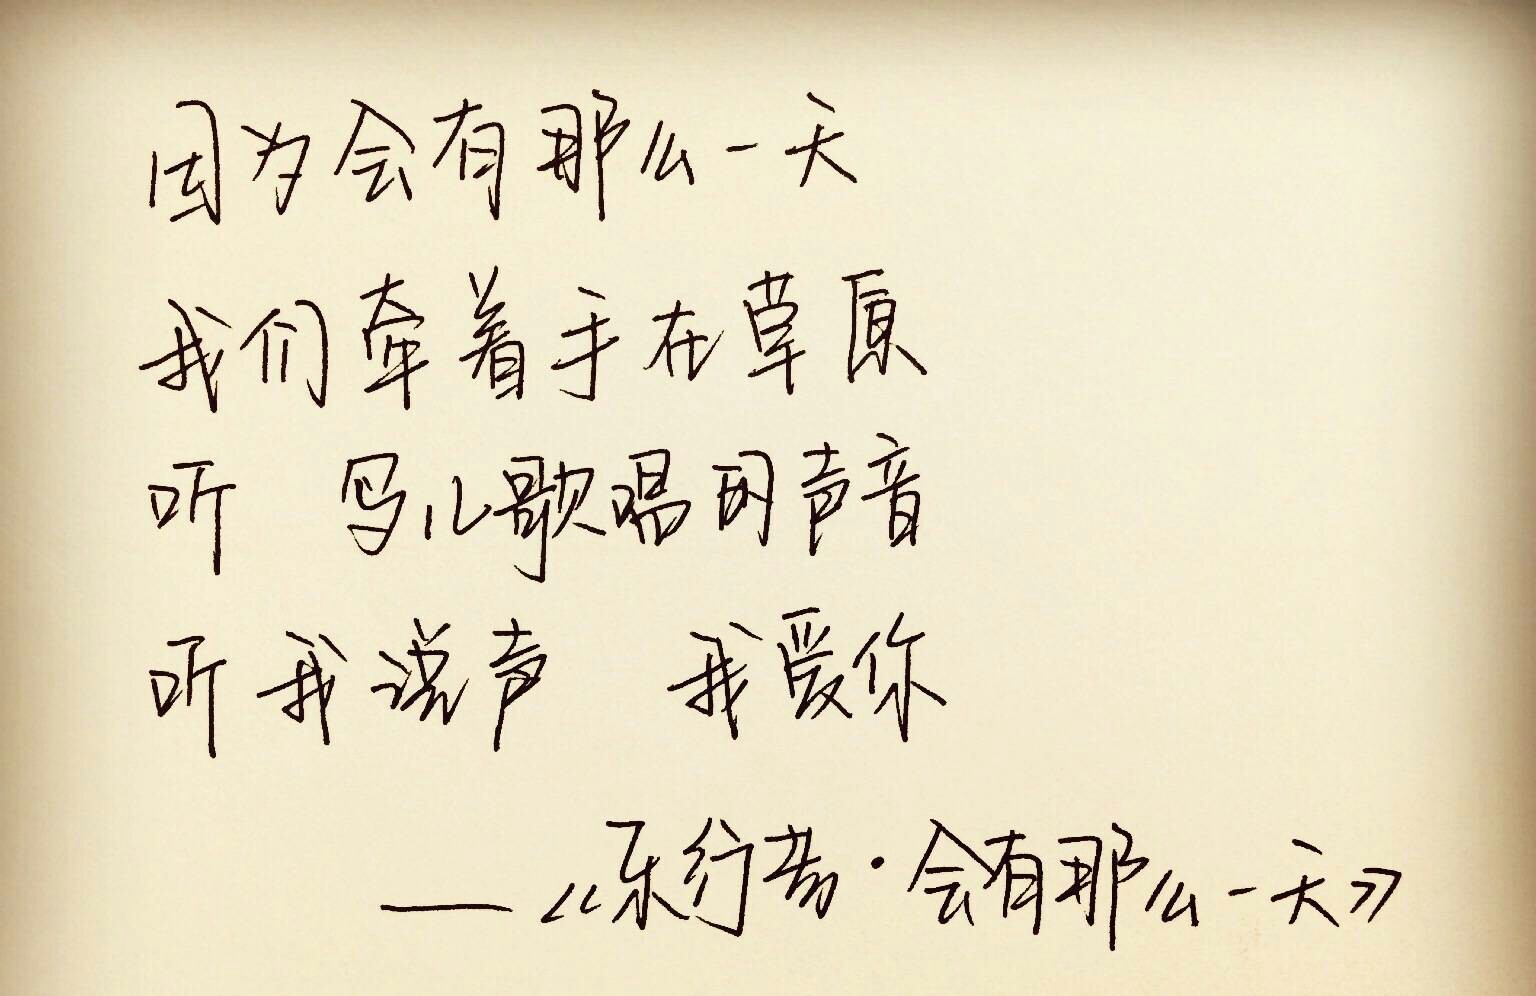 因为会有那么一天
我们牵着手在草原
听 鸟儿歌唱的声音
听我说声 我爱你
——《乐行者·会有那么一天》